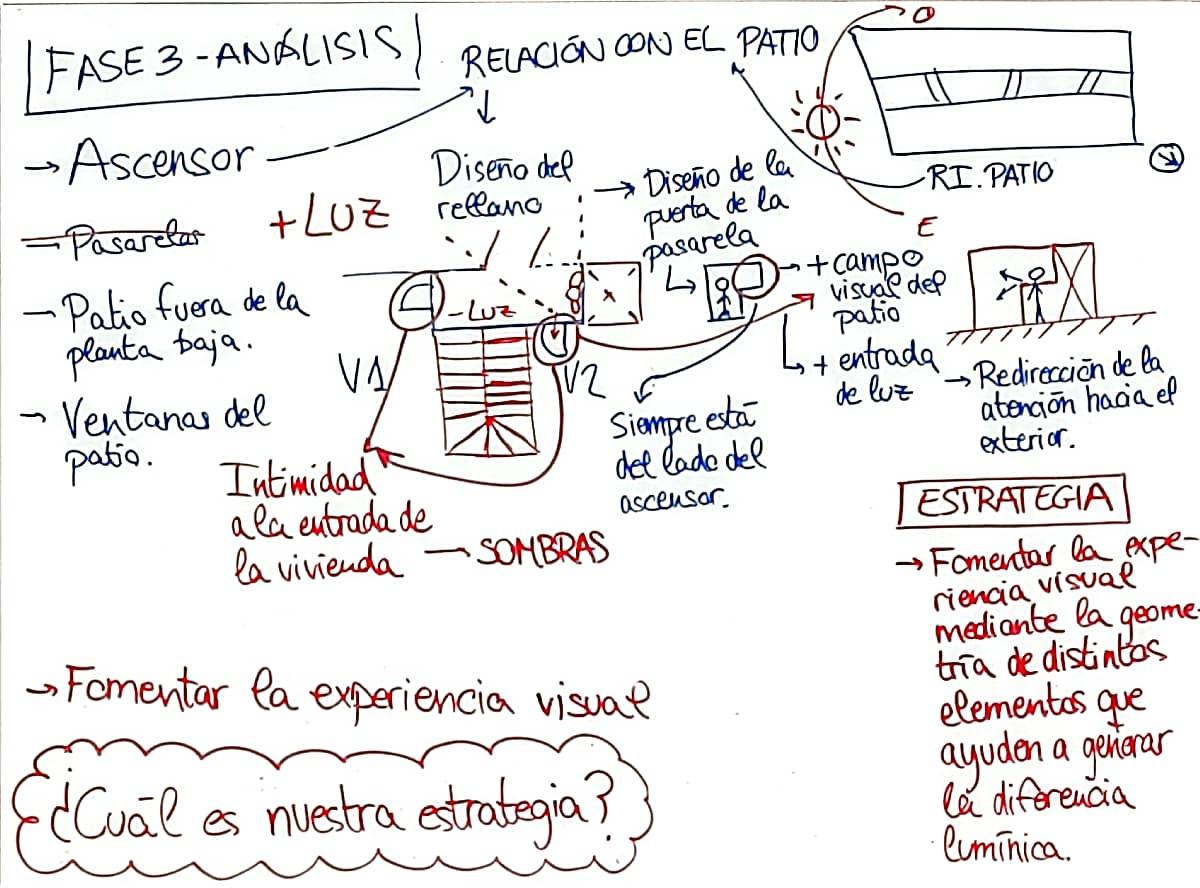 FASE 3 - ANÁLISIS
RELACIÓN CON EL PATIO
O
→ Ascensor
Pasarelas
→ Patio fuera de la
planta baja.
→ Ventanas del
patio.
+LUZ
Diseño del
rellano
→ Diseño de la
puerta de la
pasarela
RI. PATIO
E
-LUZ
V1
V2
→ + campo
visual del
patio
+ entrada
de luz
→ Redirección de la
atención hacia el
exterior.
Siempre está
del lado del
ascensor.
Intimidad
a la entrada de
la vivienda — SOMBRAS
ESTRATEGIA
→ Fomentar la expe-
riencia visual
mediante la geome-
tría de distintos
elementos que
ayuden a generar
la diferencia
lumínica.
→ Fomentar la experiencia visual
¿Cuál es nuestra estrategia?